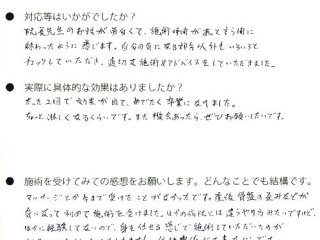 ● 対応等はいかがでしたか？
院長先生のお話が面白くて、施術時間があっという間に
終わったように感じます。自分の気になる部分以外もいろいろと
チェックしていただき、適切な施術とアドバイスをしていただきました。
● 実際に具体的な効果はありましたか？
たった2回で効果が出て、めでたく卒業になりました。
ちょっと淋しくなるくらいです。また機会あったら、ぜひお願いしたいです。
● 施術を受けてみての感想をお願いします。どんなことでも結構です。
マッサージとか今まで受けたことがなかったです。産後骨盤の歪みなどが
気になって初めて施術を受けました。ほかの病院とは違うやり方みたいですけど、
ほかに経験してないので、身を任せる感じで施術していただいたのが